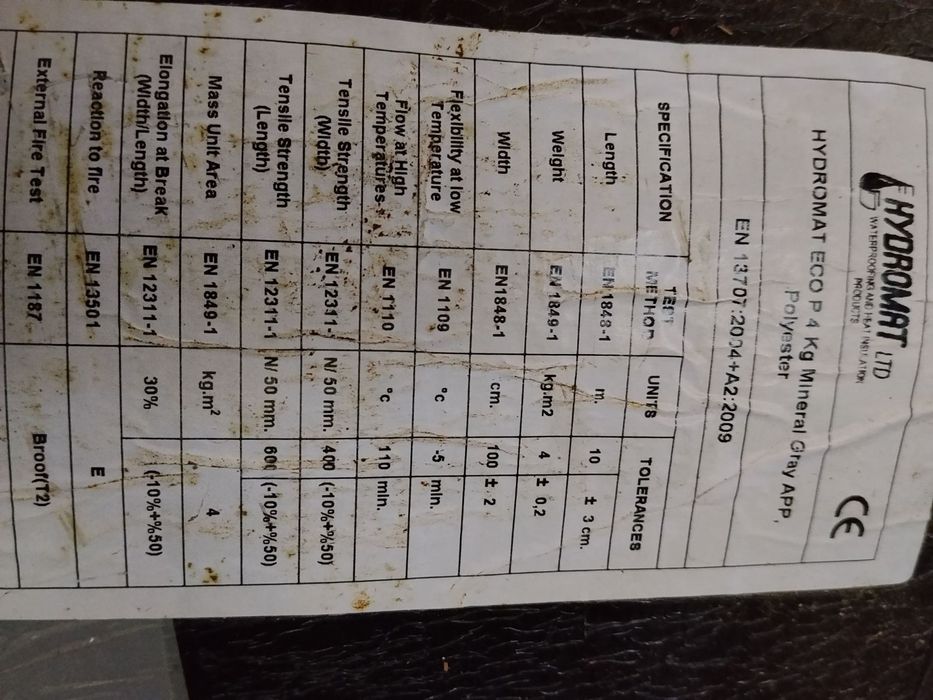 HYDROMAT LTD
WATERPROOFING AND HEAT INSULATION
PRODUCTS
CE
HYDROMAT ECO P 4 Kg Mineral Gray App,
Polyester
EN 13707:2004+A2:2009
SPECIFICATION TEST METHOD UNITS TOLERANCES
Length EN 1848-1 m. 10 ± 3 cm.
Weight EN 1849-1 kg.m2 4 ± 0,2
Width EN1848-1 cm. 100 ± 2
Flexibility at low Temperature EN 1109 °c -5 min.
Flow at High Temperatures EN 1110 °c 110 min.
Tensile Strength (Width) EN 12311-1 N/ 50 mm. 400 (-10%+%50)
Tensile Strength (Length) EN 12311-1 N/ 50 mm. 600 (-10%+%50)
Mass Unit Area EN 1849-1 kg.m² 4
Elongation at Break (Width/Length) EN 12311-1 30% (-10%+%50)
Reaction to fire EN 13501 E
External Fire Test EN 1187 Broof(T2)